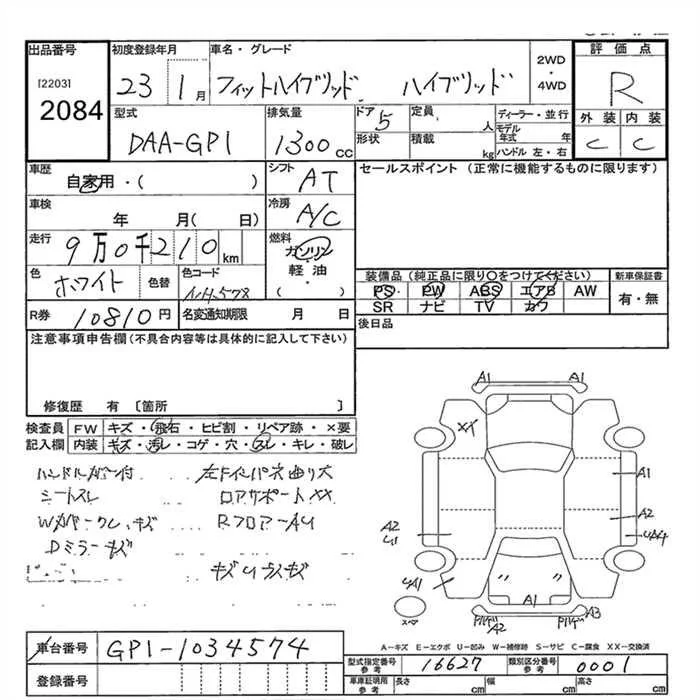 出品番号 初度登録年月 車名・グレード 2WD・4WD 評価点
[2203] 2084 23 1月 フィットハイブリッド ハイブリッド R
型式 排気量 ドア 5 定員 人 ディーラー・並行 外装 内装
DAA-GP1 1300cc 形状 積載 kg モデル年式 年 ハンドル 左・右 C C
車歴 自家用・( ) シフト AT セールスポイント (正常に機能するものに限ります)
車検 年 月( 日) 冷房 A/C
走行 9万0千210km 燃料 ガソリン 軽油 ( )
色 ホワイト 色替 色コード NH-578
装備品(純正品に限り○をつけてください) 新車保証書
PS PW ABS エアB AW 有・無
SR ナビ TV カワ
R券 10810円 名変通知期限 月 日 後日品
注意事項申告欄(不具合内容等は具体的に記入して下さい)
修復歴 有 〔箇所 〕
検査員記入欄 FW キズ・飛石・ヒビ割・リペア跡・×要
内装 キズ・汚レ・コゲ・穴・スレ・キレ・破レ
ハンドルカバー付 左Fインパネ曲り大
シートスレ コアサポートXX
Wカバークレ、キズ Rフロアー
Dミラーキズ
キズ
A1 A1
XX
A1
A2
A2
A1
A2
A3
スペア
A-キズ E-エクボ U-凹み W-補修跡 S-サビ C-腐食 XX-交換済
車台番号 GP1-1034574
型式指定番号 参考 16627 類別区分番号 参考 0001
登録番号 車庫証明用 参考 長さ cm 幅 cm 高さ cm